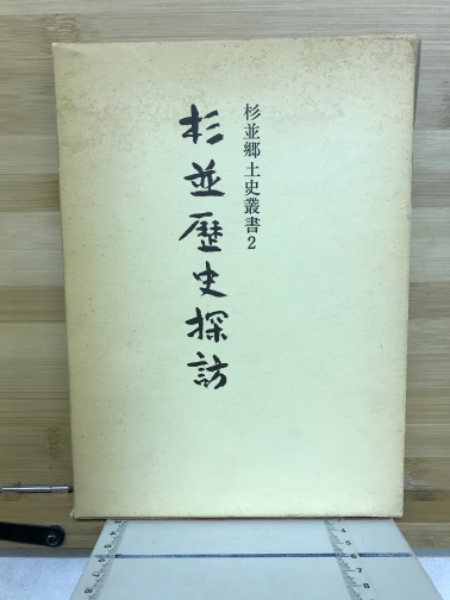 杉並郷土史叢書2
杉並歴史探訪